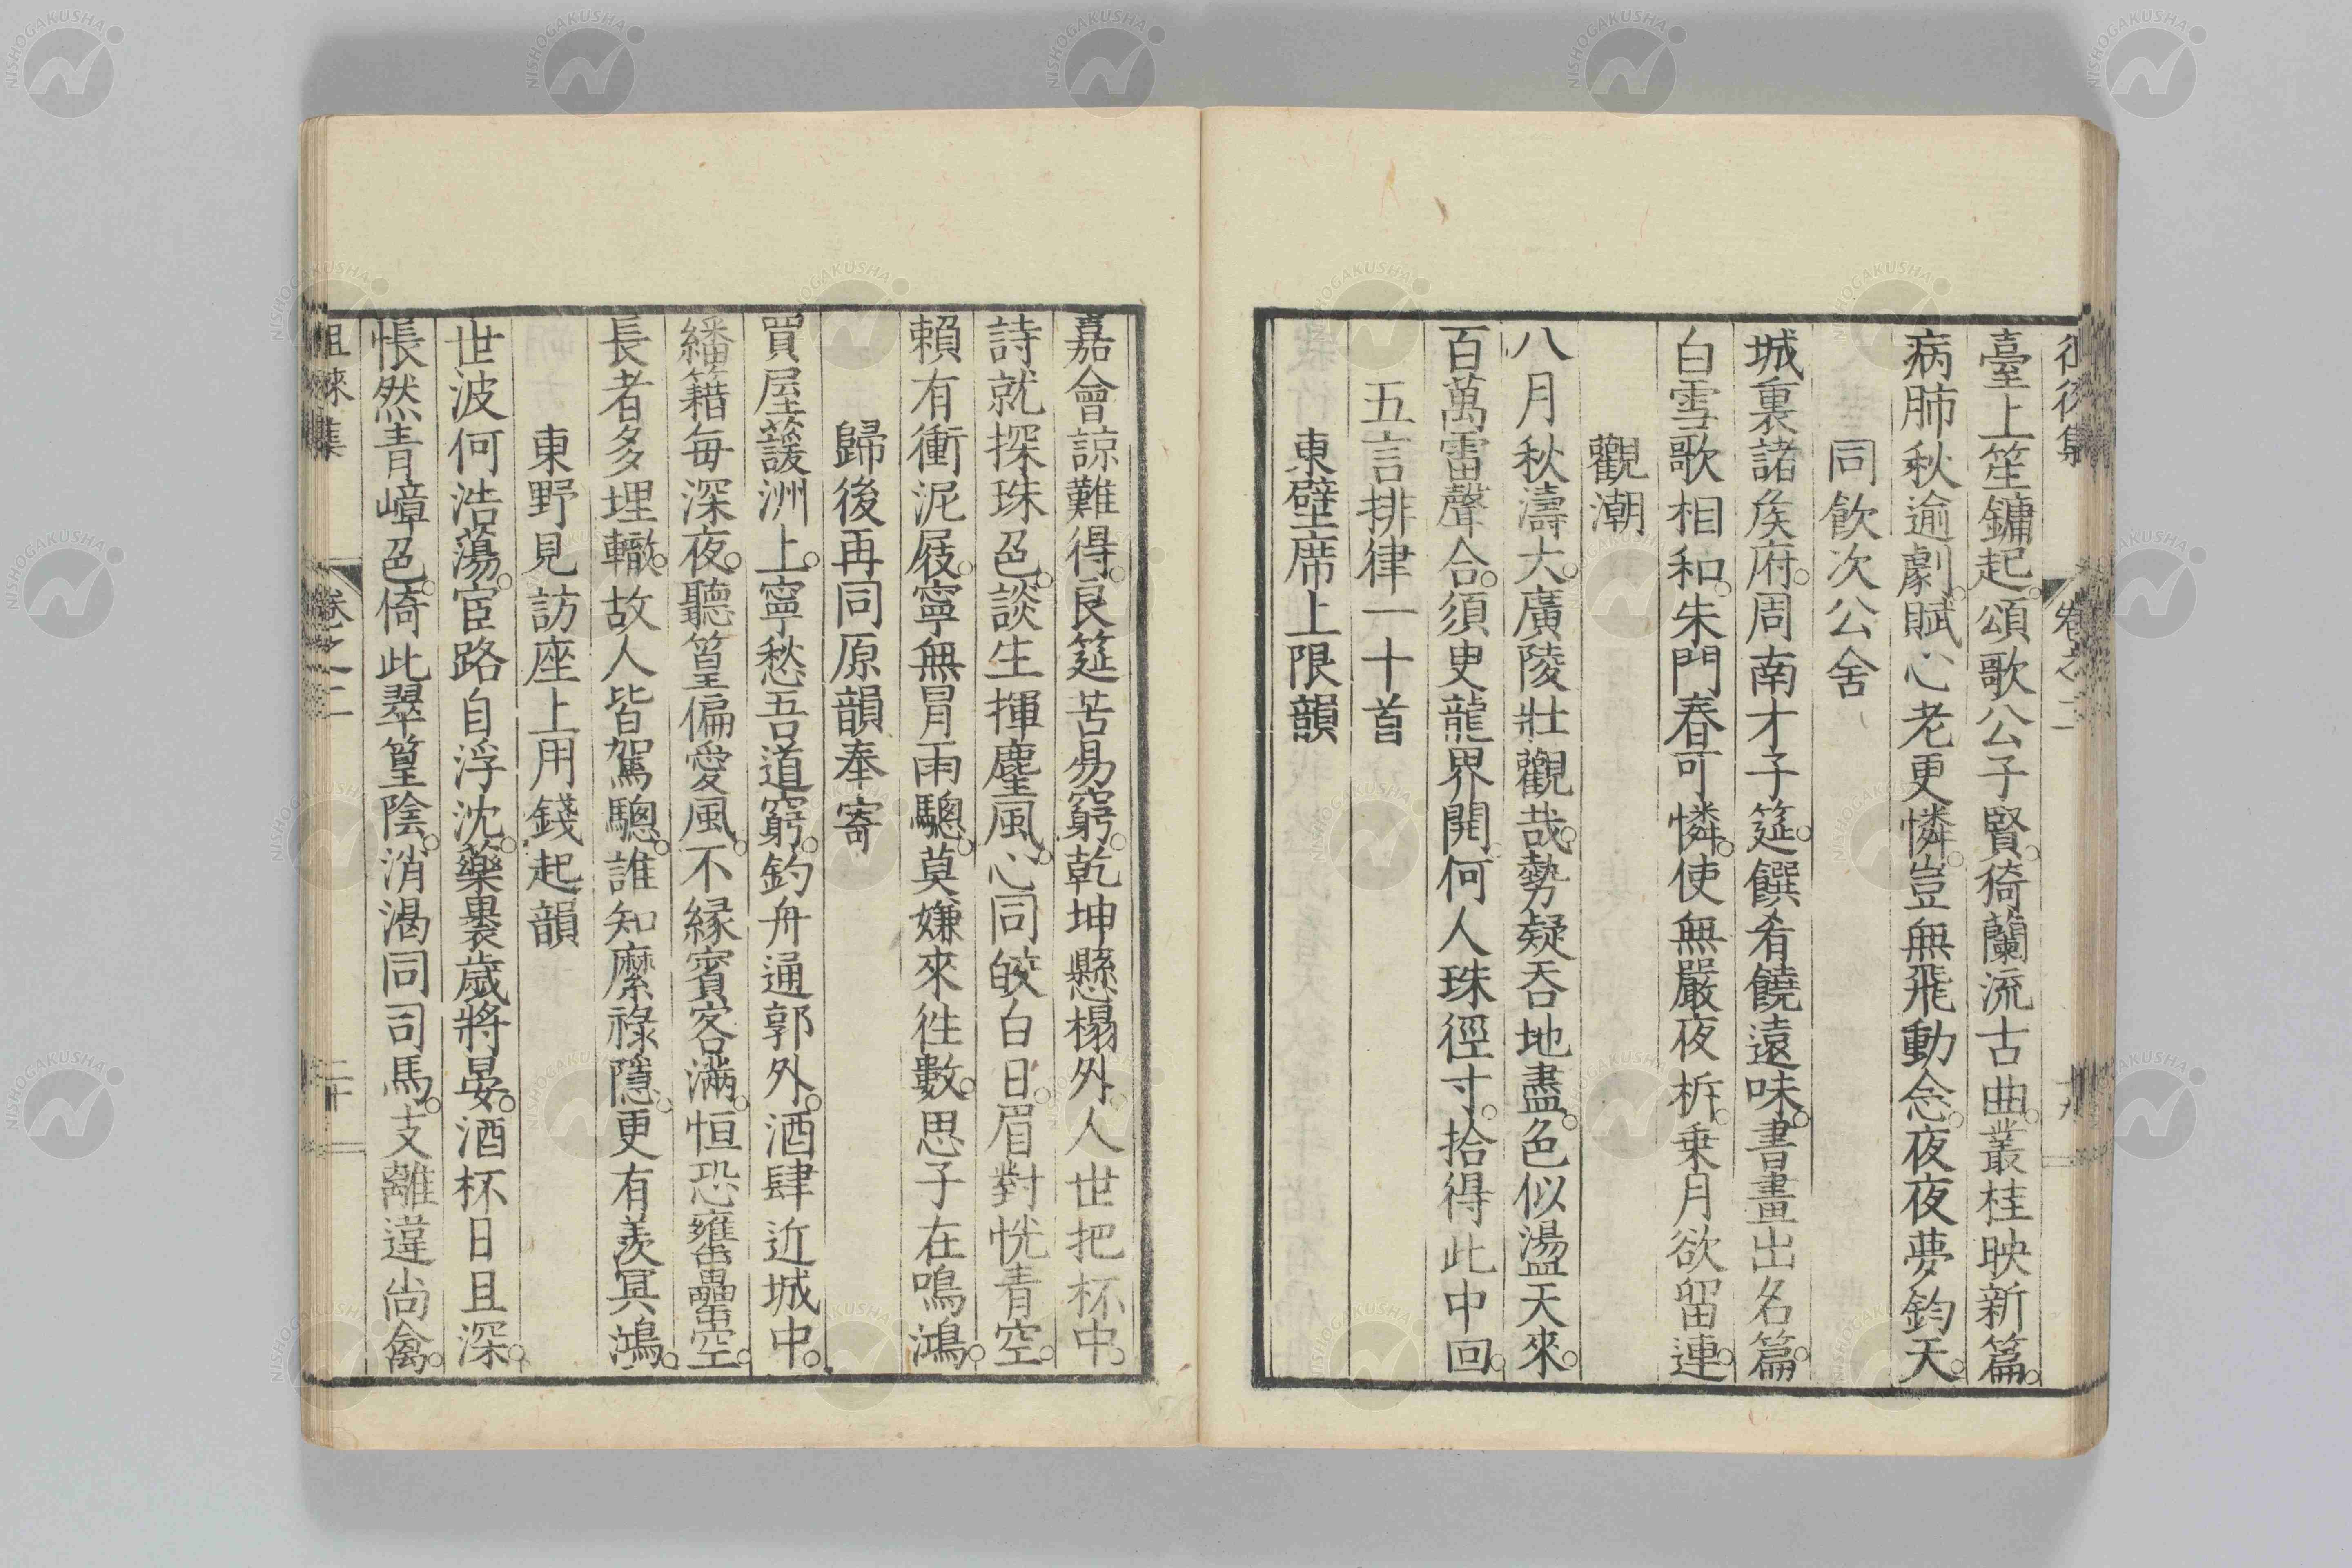 臺上笙鏞起。頌歌公子賢。猗蘭流古曲。叢桂映新篇。
病肺秋逾劇。賦心老更憐。豈無飛動念。夜夜夢鈞天。
同飲次公舍
城裏諸矦府。周南才子筵。饌肴饒遠味。書畫出名篇。
白雪歌相和。朱門春可憐。使無嚴夜柝。乗月欲留連。
觀潮
八月秋濤大。廣陵壯觀哉。勢疑呑地盡。色似盪天來。
百萬雷聲合。須臾龍界開。何人珠徑寸。拾得此中回。
五言排律一十首
東壁席上限韻
嘉會諒難得。良筵苦易窮。乾坤懸榻外。人世把杯中。
詩就探珠色。談生揮麈風。心同皎白日。眉對恍青空。
賴有衝泥屐。寧無冒雨驄。莫嫌來徃數。思子在鳴鴻。
歸後再同原韻奉寄
買屋薐洲上。寧愁吾道窮。釣舟通郭外。酒肆近城中。
繙籍每深夜。聽篁偏愛風。不緣賓客滿。恒恐甕罍空。
長者多埋轍。故人皆駕驄。誰知麋祿隱。更有羨冥鴻。
東野見訪座上用錢起韻
世波何浩蕩。宦路自浮沈。藥裹歳將晏。酒杯日且深。
悵然青嶂色。倚此翠篁陰。消渇同司馬。支離違尙禽。
徂徠集
卷之二
二十